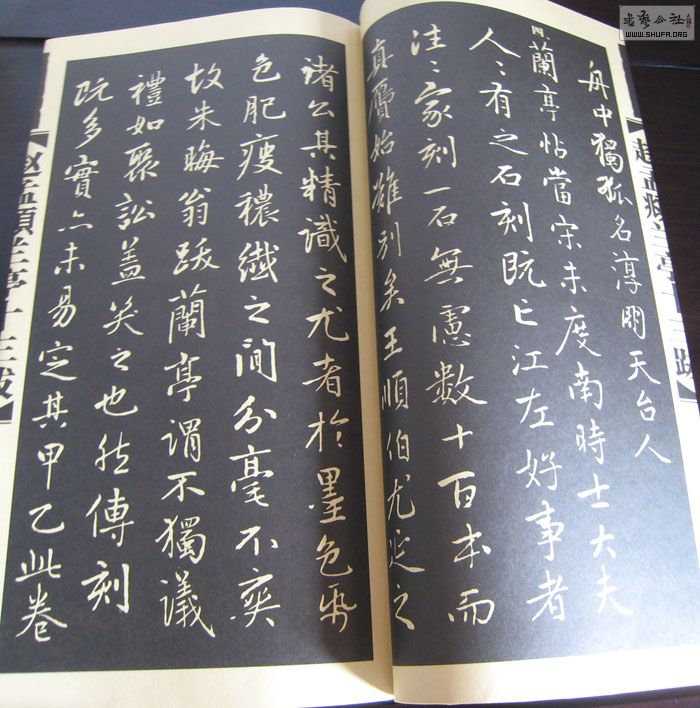 書藝公社
WWW.SHUFA.ORG
赵孟頫兰亭十三跋
舟中獨孤名淳朋天台人
四、
蘭亭帖當宋未度南時士大夫
人々有之石刻既亡江左好事者
往々家刻一石無慮數十百本而
真贗始難別矣王順伯尤延之
諸公其精識之尤者於墨色紙
色肥瘦穠纖之間分毫不爽
故朱晦翁跋蘭亭謂不獨議
禮如聚訟盖笑之也然傳刻
既多實亦未易定其甲乙此卷
赵孟頫兰亭十三跋